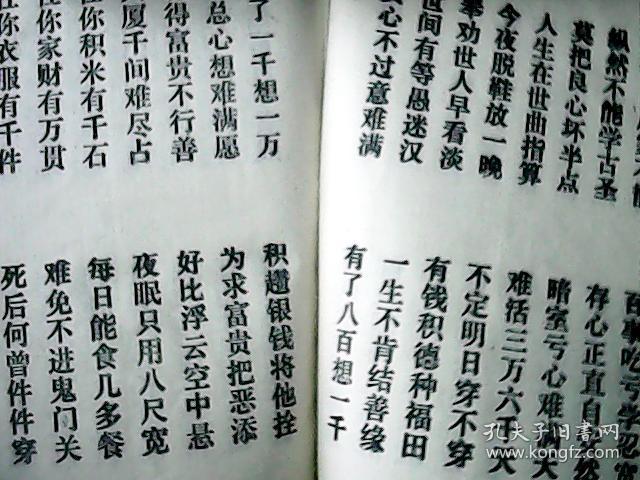 百事吃亏学忍宽
纵然不能学古圣
存心正直自然
莫把良心坏半点
暗室亏心难瞒天
人生在世曲指算
难活三万六千天
今夜脱鞋放一晚
不定明日穿不穿
奉劝世人早看淡
有钱积德种福田
世间有等愚迷汉
一生不肯结善缘
心不过意难满
有了八百想一千
了一千想一万
积趱银钱将他拴
总心想难满愿
为求富贵把恶添
得富贵不行善
好比浮云空中悬
厦千间难尽占
夜眠只用八尺宽
你积米有千石
每日能食几多餐
你家财有万贯
难免不进鬼门关
你衣服有千件
死后何曾件件穿
孔夫子旧书网
kongfz.com